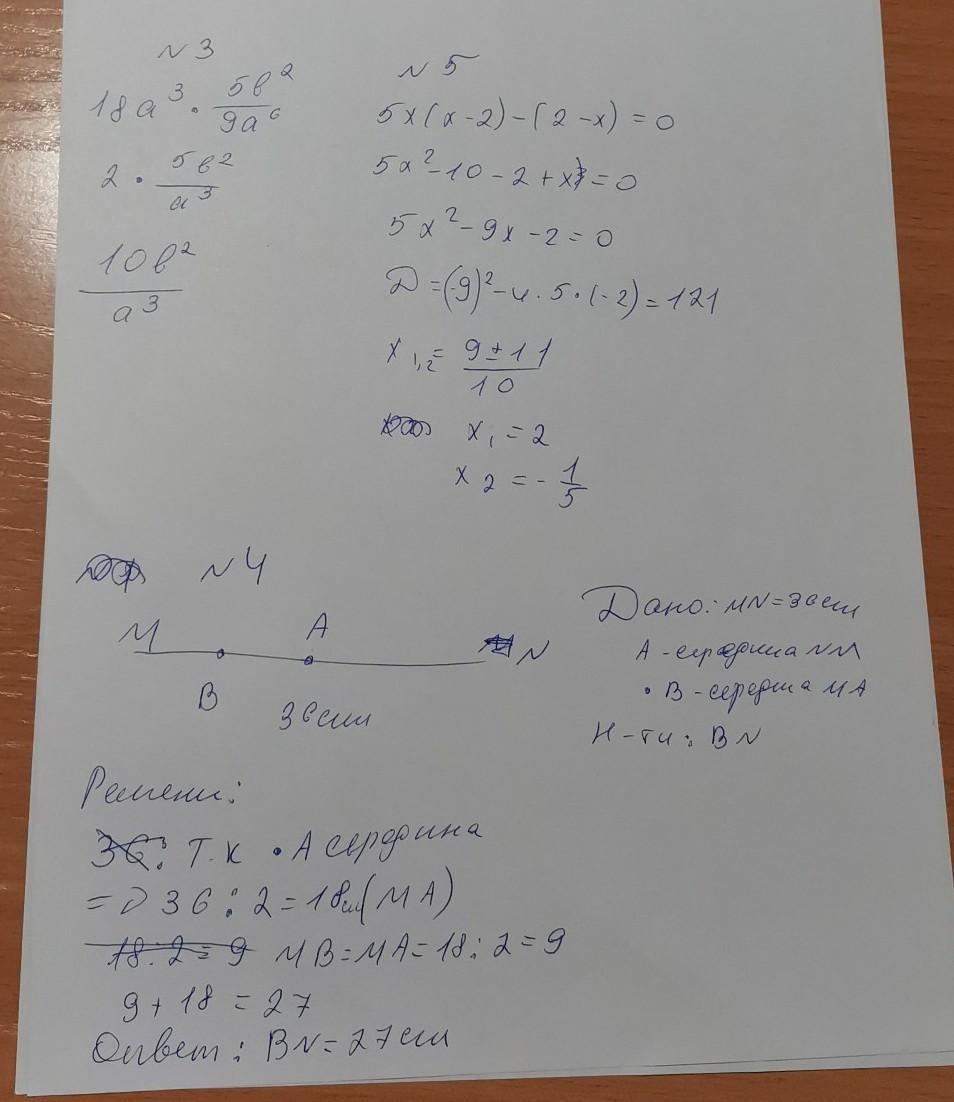 N 3
18a³ · 5b²/9a⁶
2 · 5b²/a³
10b²/a³
N 5
5x(x-2)-(2-x)=0
5x²-10-2+x=0
5x²-9x-2=0
Д=(-9)²-4·5·(-2)=121
x₁,₂=9±11/10
x₁=2
x₂=-1/5
N 4
M A N
B
36см
Дано: MN=36см
A-середина NM
· B-середина MA
Н-ти: BN
Решени:
36: Т.К · A середина
=> 36:2=18см(MA)
18:2=9 MB=MA=18:2=9
9+18=27
Ответ: BN=27см